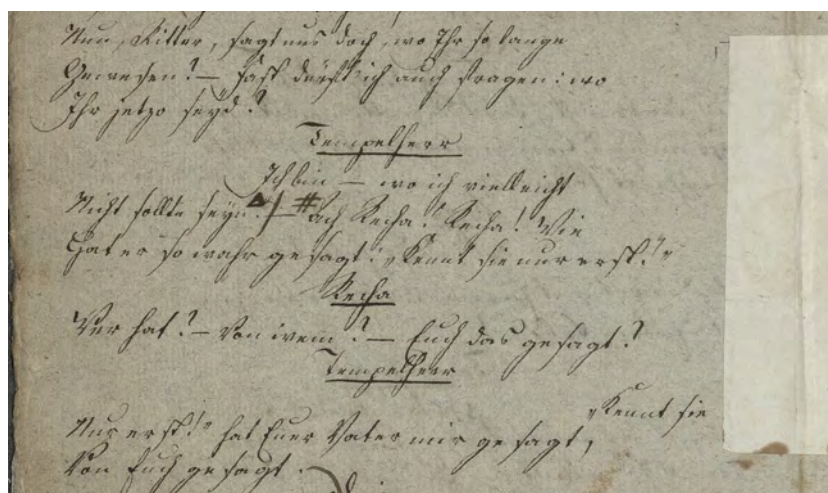 Nun, Ritter, sagt uns doch, wo Ihr so lange
Gewesen? – fast dürft' ich auch fragen: wo
Ihr jetzo seyd?
Tempelherr
Ich bin – wo ich vielleicht
Nicht sollte seyn. – # Ach Recha! Recha! Wie
Hat er so wahr gesagt: „Kennt sie nur erst!"
Recha
Wer hat? – Von wem? – Euch das gesagt?
Tempelherr
„Kennt sie
Nur erst!" hat Euer Vater mir gesagt,
Von Euch gesagt.